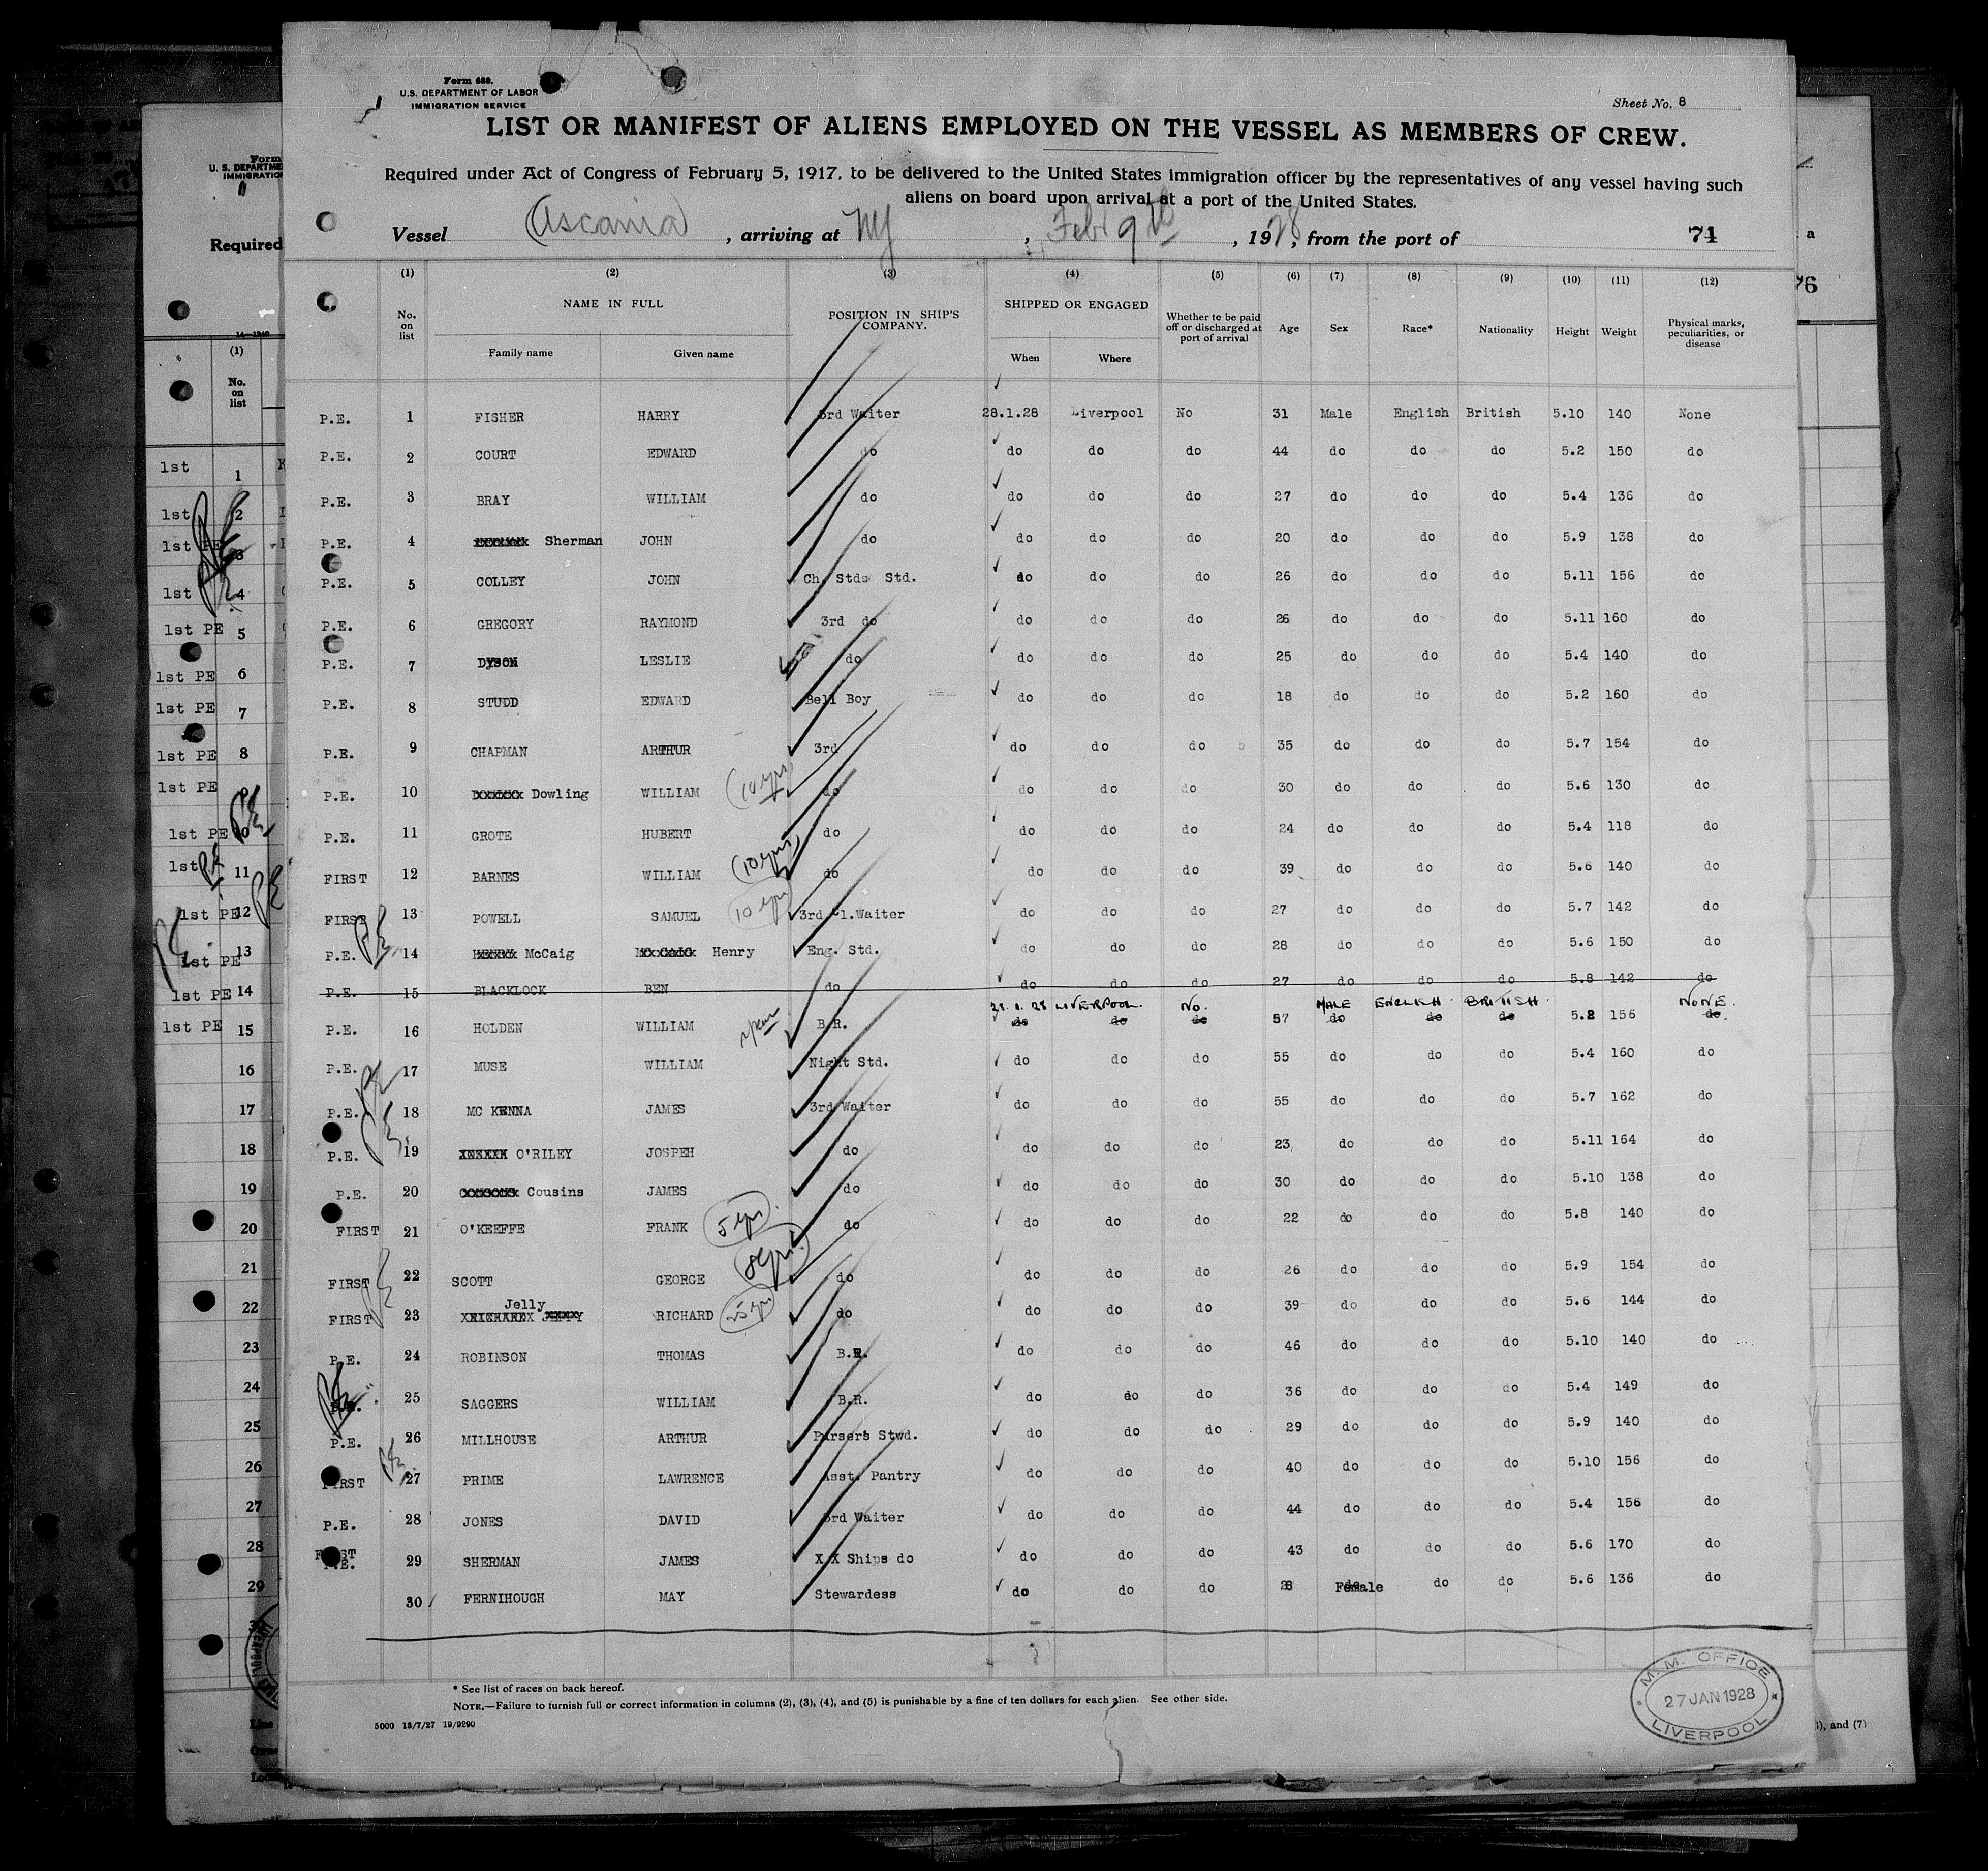 Form 680.
U.S. DEPARTMENT OF LABOR
IMMIGRATION SERVICE
Sheet No. 8
LIST OR MANIFEST OF ALIENS EMPLOYED ON THE VESSEL AS MEMBERS OF CREW.
Required under Act of Congress of February 5, 1917, to be delivered to the United States immigration officer by the representatives of any vessel having such
aliens on board upon arrival at a port of the United States.
Vessel Ascania , arriving at NY , Feb 9th , 1928, from the port of 74
(1) (2) (3) (4) (5) (6) (7) (8) (9) (10) (11) (12)
No. on list NAME IN FULL Family name Given name POSITION IN SHIP'S COMPANY. SHIPPED OR ENGAGED When Where Whether to be paid off or discharged at port of arrival Age Sex Race* Nationality Height Weight Physical marks, peculiarities, or disease
P.E. 1 FISHER HARRY 3rd Waiter 28.1.28 Liverpool No 31 Male English British 5.10 140 None
P.E. 2 COURT EDWARD do do do do 44 do do do 5.2 150 do
P.E. 3 BRAY WILLIAM do do do do 27 do do do 5.4 136 do
P.E. 4 Sherman JOHN do do do do 20 do do do 5.9 138 do
P.E. 5 COLLEY JOHN Ch. Stds Std. do do do 26 do do do 5.11 156 do
P.E. 6 GREGORY RAYMOND 3rd do do do do 26 do do do 5.11 160 do
P.E. 7 DYSON LESLIE do do do do 25 do do do 5.4 140 do
P.E. 8 STUDD EDWARD Bell Boy do do do 18 do do do 5.2 160 do
P.E. 9 CHAPMAN ARTHUR 3rd do do do 35 do do do 5.7 154 do
P.E. 10 Dowling WILLIAM (10 yrs) do do do do 30 do do do 5.6 130 do
P.E. 11 GROTE HUBERT do do do do 24 do do do 5.4 118 do
FIRST 12 BARNES WILLIAM (10 yrs) do do do do 39 do do do 5.6 140 do
FIRST 13 POWELL SAMUEL (10 yrs) 3rd Cl.Waiter do do do 27 do do do 5.7 142 do
P.E. 14 HENRY McCaig MC CAIG Henry Eng. Std. do do do 28 do do do 5.6 150 do
P.E. 15 BLACKLOCK BEN do do do do 27 do do do 5.8 142 do
28.1.28 LIVERPOOL. NO. MALE ENGLISH BRITISH NONE.
P.E. 16 HOLDEN WILLIAM B.R. do do do 57 do do do 5.8 156 do.
P.E. 17 MUSE WILLIAM Night Std. do do do 55 do do do 5.4 160 do
P.E. 18 MC KENNA JAMES 3rd Waiter do do do 55 do do do 5.7 162 do
P.E. 19 O'RILEY JOSPEH do do do do 23 do do do 5.11 164 do
P.E. 20 Cousins JAMES do do do do 30 do do do 5.10 138 do
FIRST 21 O'KEEFFE FRANK (5 yrs) do do do do 22 do do do 5.8 140 do
FIRST 22 SCOTT GEORGE (8 yrs) do do do do 26 do do do 5.9 154 do
Jelly
FIRST 23 RICHARD (25 yrs) do do do do 39 do do do 5.6 144 do
P.E. 24 ROBINSON THOMAS B.R. do do do 46 do do do 5.10 140 do
P.E. 25 SAGGERS WILLIAM B.R. do do do 36 do do do 5.4 149 do
P.E. 26 MILLHOUSE ARTHUR Pursers Stwd. do do do 29 do do do 5.9 140 do
FIRST 27 PRIME LAWRENCE Asst. Pantry do do do 40 do do do 5.10 156 do
P.E. 28 JONES DAVID 3rd Waiter do do do 44 do do do 5.4 156 do
FIRST P.E. 29 SHERMAN JAMES X X Ships do do do do 43 do do do 5.6 170 do
30 FERNIHOUGH MAY Stewardess do do do Female do do 5.6 136 do
* See list of races on back hereof.
NOTE.—Failure to furnish full or correct information in columns (2), (3), (4), and (5) is punishable by a fine of ten dollars for each alien. See other side.
5000 13/7/27 19/9290
M.M. OFFICE
27 JAN 1928
LIVERPOOL
Form
U. S. DEPARTME
IMMIGRATIO
Required
14—1240
(1)
No.
on
list
1st 1
1st 2
1st PE 3
1st 4
1st PE 5
1st PE 6
1st PE 7
1st PE 8
1st PE 9
1st PE 10
1st 11
1st PE 12
1st PE 13
1st PE 14
1st PE 15
16
17
18
19
20
21
22
23
24
25
26
27
28
29
LIVERPOOL
a
76
), and (7)